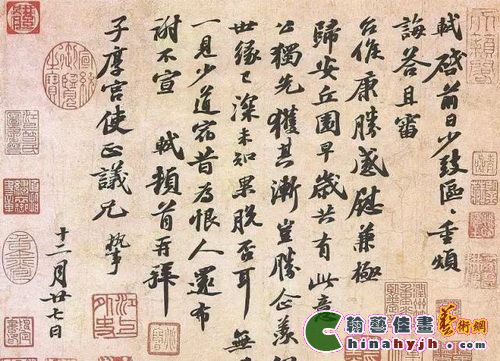 軾啓前日少致區〻重煩
誨答且審
台候康勝感慰兼極
歸安丘園早歲共有此意
公獨先獲其漸豈勝企羨
世緣已深未知果脫否耳無
一見少道宿昔為恨人還布
謝不宣 軾頓首再拜
子厚宮使正議兄 執事
十二月廿七日
翰藝佳畫藝術網
hinahyjh.com